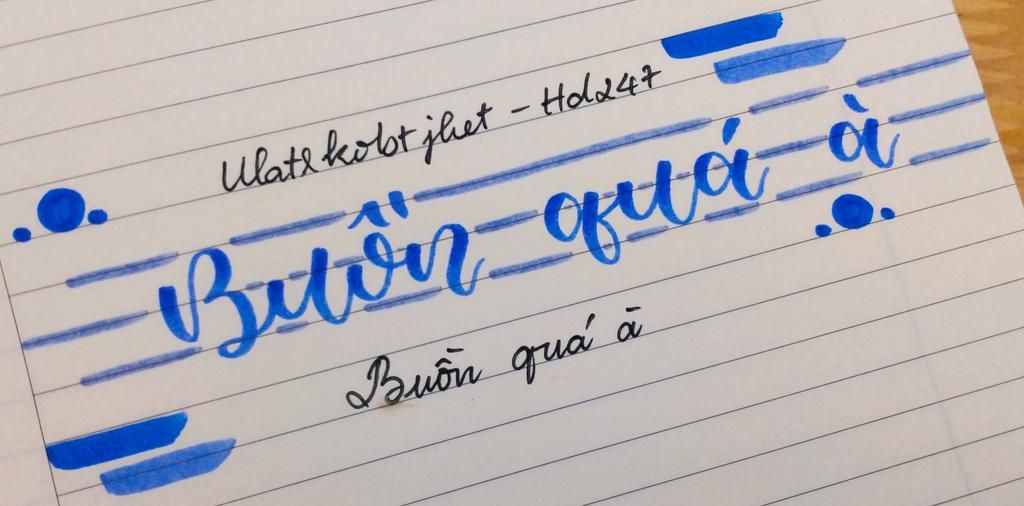 Ulatr kobt jhet - Hd247
Buồn quá à
Buồn quá à